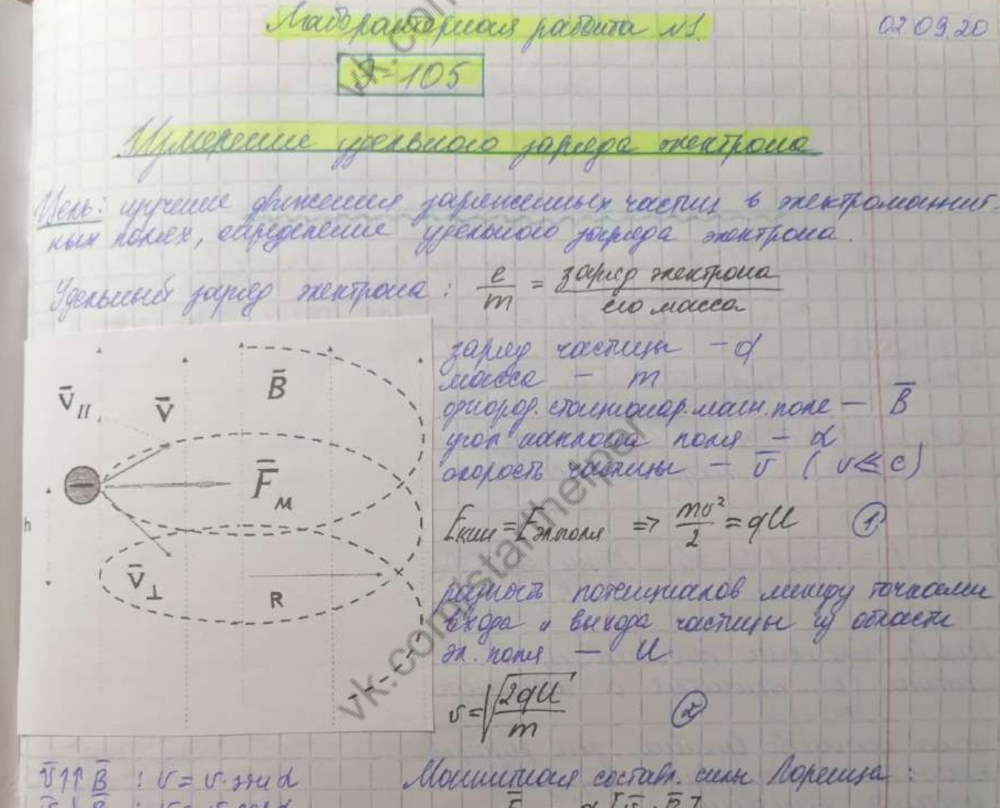 Лабораторная работа №1
02.09.20
Э-105
Измерение удельного заряда электрона
Цель: изучение движения заряженных частиц в электромагнит-
ных полях, определение удельного заряда электрона.
Удельный заряд электрона: e/m = заряд электрона / его масса
заряд частицы - q
масса - m
однород. стационар. магн. поле - B̄
угол наклона поля - α
скорость частицы - v̄ (v ≪ c)
Eкин = Eэл.поля => mv²/2 = qU (1)
разность потенциалов между точками
входа и выхода частицы из области
эл. поля - U
v = √(2qU/m) (2)
v̄ıı
v̄
B̄
F̄м
h
v̄⊥
R
v̄↑↑B̄ : v = v·sin α
Магнитная составл. силы Лоренца:
vk.com/stathelper